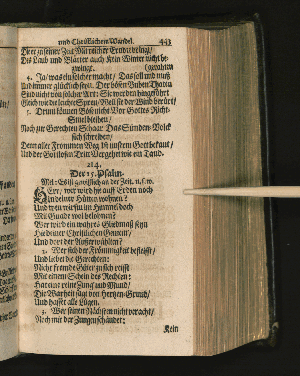 und Christlichem Wandel. 443
Die er zu seiner Zeit
Des Laub und Blätter auch kein Winter nicht be-
zwinge.
4. Ja/ was ein solcher macht/ Das soll und muß
und immer glücklich seyn. Der bösen Buben Thaten
Sind nicht von solcher Art: Sie werden hingeführt
Gleich wie der leichte Spreu/ Weil sie der Wind berührt/
5. Drum können Böse nicht Vor Gottes Richt-
Stuel bleiben/
Noch zur Gerechten Schaar Das Sünden-Volck
sich schreiben/
Denn aller Frommen Weg Ist unserm Gott bekant/
Und der Gottlosen Tritt Vergehet wie ein Tand.
214.
Der 15. Psalm.
Mel: Es ist gewißlich an der Zeit, u.s.w.
HErr, wer wird hie auff Erden noch
In deiner Hütten wohnen?
Und wen wirstu im Himmel doch
Mit Gnade wol belohnen?
Wer wird ein wahres Gliedmaß seyn
Hie deiner Christlichen Gemein/
Und dort der Außerwählten?
2. Wer sich der Frömmigkeit befleist/
Und liebet die Gerechten:
Nicht fremde Güter zu sich reist
Mit einem Schein des Rechten:
Hat eine reine Zung und Mund/
Die Warheit sagt von Hertzen-Grund/
Und hasset alle Lügen.
3. Wer seinen Nächsten nicht veracht/
Noch mit der Zungen schändet:
Kein